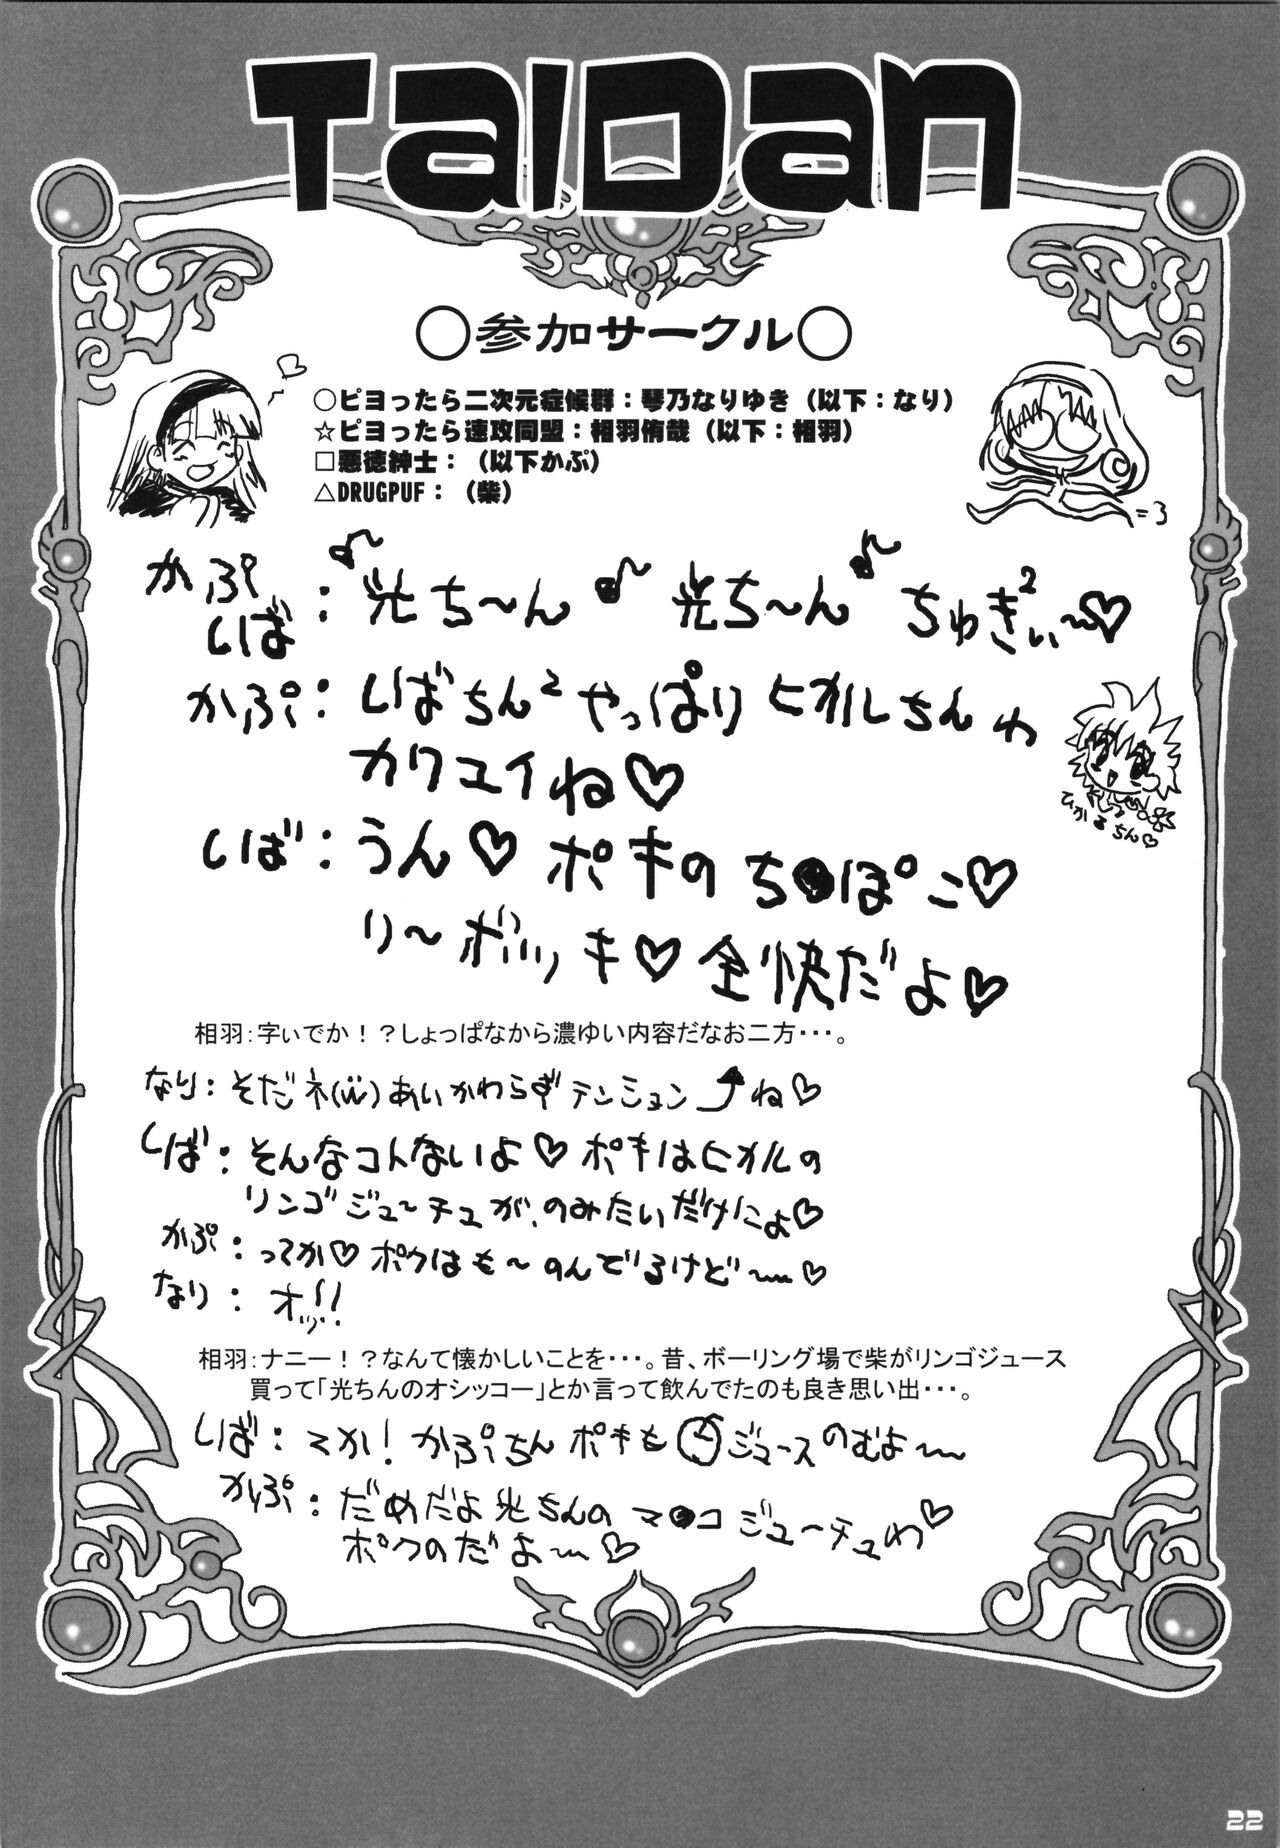 TaIDan
○参加サークル○
○ピヨったら二次元症候群：琴乃なりゆき（以下：なり）
☆ピヨったら速攻同盟：相羽侑哉（以下：相羽）
□悪徳紳士：（以下かぷ）
△DRUGPUF：（柴）
=3
かぷ
しば：♪光ち〜ん♪光ち〜ん♪ちゅきぃ²〜♡
かぷ：しばちん²やっぱりヒカルちんわ
カワユイね♡
ひかるちん♡
しば：うん♡ポキのち●ぽこ♡
り〜ボッキ♡全快だよ♡
相羽：字ぃでか！？しょっぱなから濃ゆい内容だなお二方・・・。
なり：そだネ(ｗ)あいかわらずテンション⤴ね♡
しば：そんなコトないよ♡ポキはヒカルの
リンゴジュ〜チュが、のみたいだけにょ♡
かぷ：ってか♡ボクはも〜のんでるけど〜♡
なり：オッ!!
相羽：ナニー！？なんて懐かしいことを・・・。昔、ボーリング場で柴がリンゴジュース
買って「光ちんのオシッコー」とか言って飲んでたのも良き思い出・・・。
しば：てか！かぷちんポキもジュースのむよ〜
かぷ：だめだよ光ちんのマ●コジュ〜チュわ♡
ボクのだよ〜♡
22